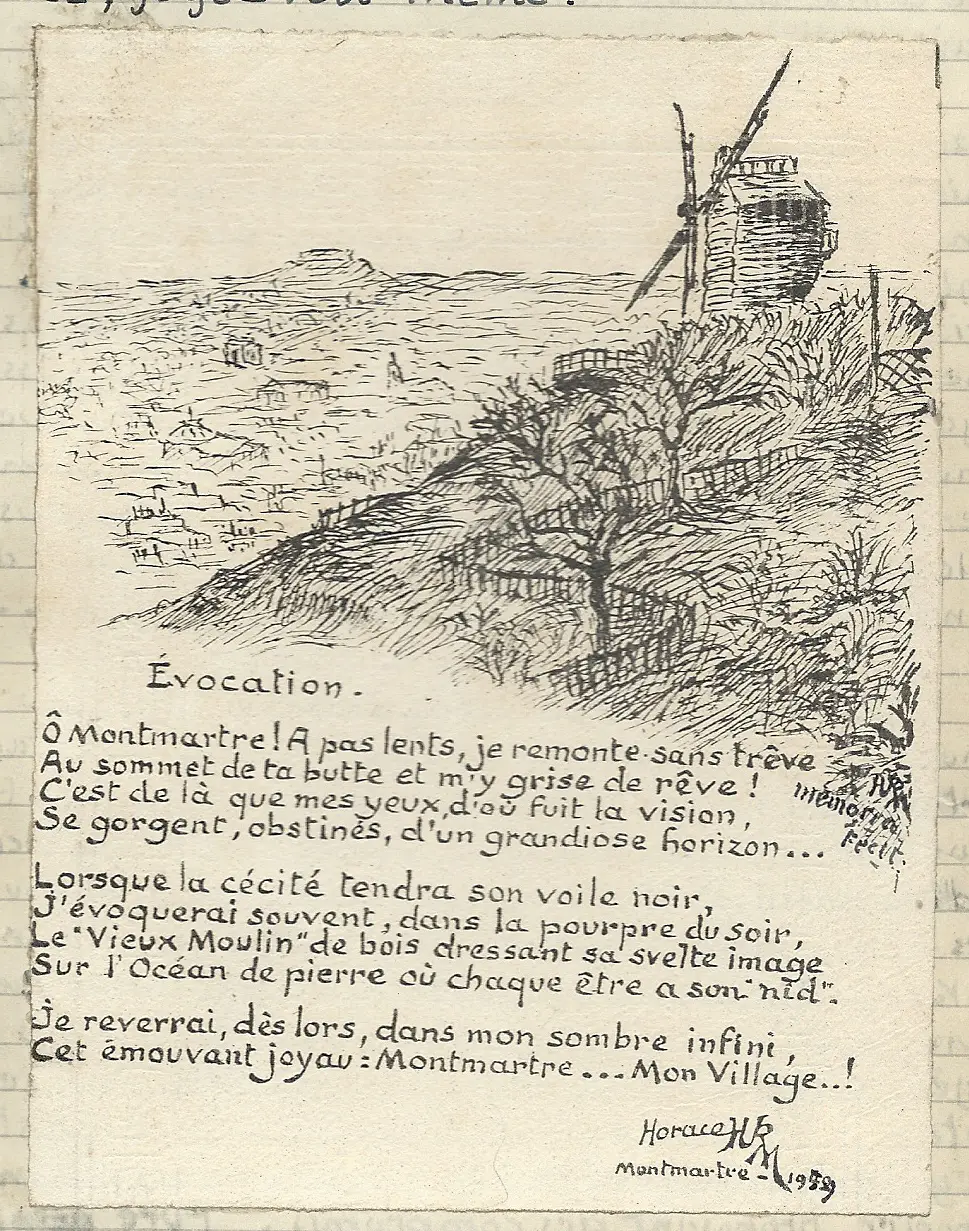 Évocation.
Ô Montmartre! A pas lents, je remonte sans trêve
Au sommet de ta butte et m'y grise de rêve!
C'est de là que mes yeux, d'où fuit la vision,
Se gorgent, obstinés, d'un grandiose horizon...
Lorsque la cécité tendra son voile noir,
J'évoquerai souvent, dans la pourpre du soir,
Le "Vieux Moulin" de bois dressant sa svelte image
Sur l'Océan de pierre où chaque être a son "nid".
Je reverrai, dès lors, dans mon sombre infini,
Cet émouvant joyau: Montmartre... Mon Village..!
Horace
Montmartre -